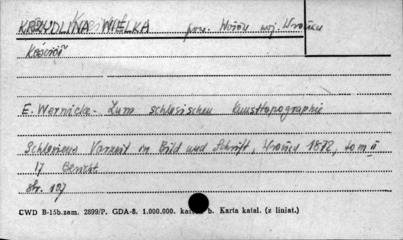 KRZYDLINA WIELKA pow. Wołów woj. Wrocław
Kościół
E. Wernicke - Zum schlesischen Kunsttopographie
Schlesiens Vorzeit in Bild und Schrift, 1872, tom II
17 Bericht
str. 107
CWD B-15b.zam. 2899/P. GDA-8. 1.000.000. b. Karta katal. (z liniat.)